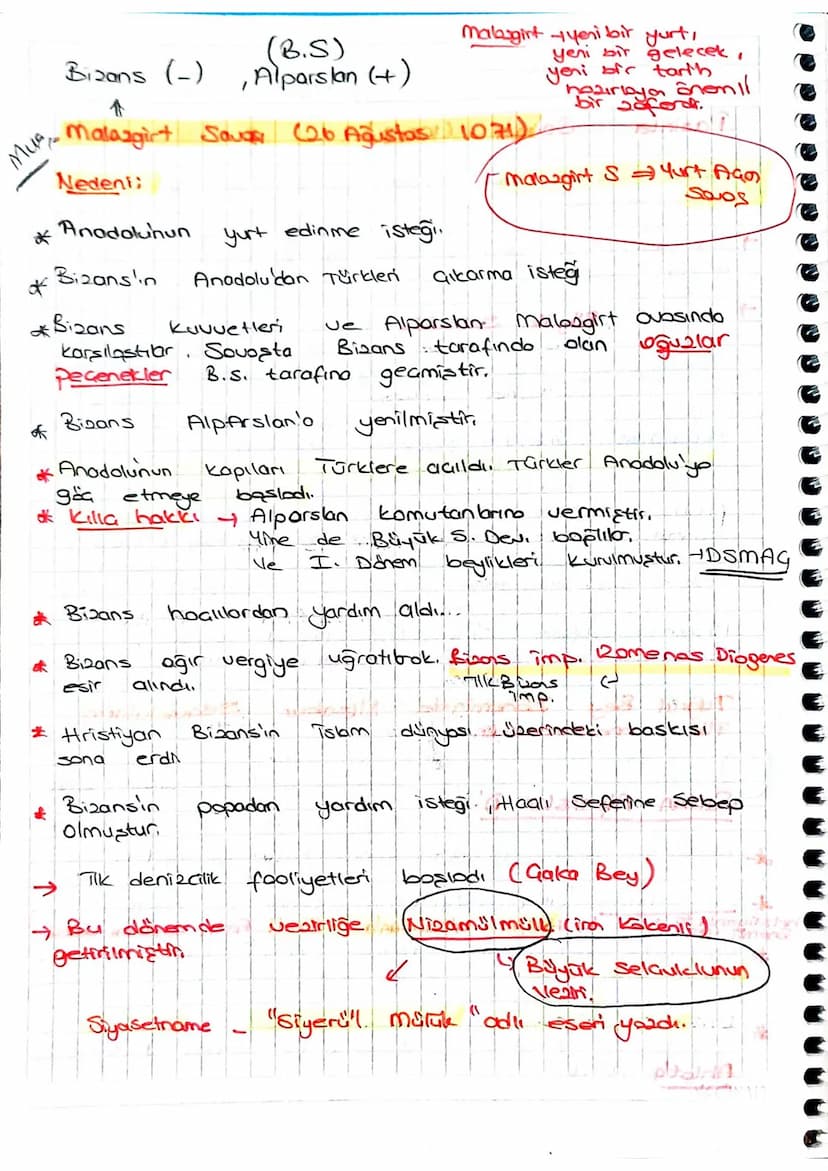 (B.S)
Bizans (-) , Alparslan (+)
Malazgirt → yeni bir yurt,
yeni bir gelecek,
yeni bir tarih
hazırlayan önemli
bir zaferdir.
Malazgirt Savaşı (26 Ağustos 1071)
Nedeni:
Malazgirt S ⇒ Yurt Açan
Savaş
* Anadolu'nun yurt edinme isteği.
* Bizans'ın Anadolu'dan Türkleri çıkarma isteği
* Bizans kuvvetleri ve Alparslan Malazgirt ovasında
karşılaştılar. Savaşta Bizans tarafında olan Oğuzlar
Peçenekler B.S. tarafına geçmiştir.
* Bizans AlpArslan'a yenilmiştir.
* Anadolunun kapıları Türklere açıldı. Türkler Anadolu'ya
göç etmeye başladı.
* Kılıç hakkı → Alparslan komutanlarına vermiştir.
Yine de Büyük S. Dev. bağlılar.
Ve I. Dönem beylikleri kurulmuştur. → DSMAÇ
* Bizans haçlılardan yardım aldı...
* Bizans ağır vergiye uğratılarak. Bizans imp. Romenas Diogenes
esir alındı. İlk Bizans
imp.
* Hristiyan Bizans'ın İslam dünyası üzerindeki baskısı
sona erdi
* Bizans'ın papadan yardım isteği, Haçlı Seferine Sebep
olmuştur.
→ İlk denizcilik faaliyetleri başladı (Çaka Bey)
→ Bu dönemde vezirliğe Nizamülmülk (iran kökenli)
getirilmiştir.
Büyük Selçuklunun
Veziri.
Siyasetname - "Siyerü'l mülük" adlı eseri yazdı.